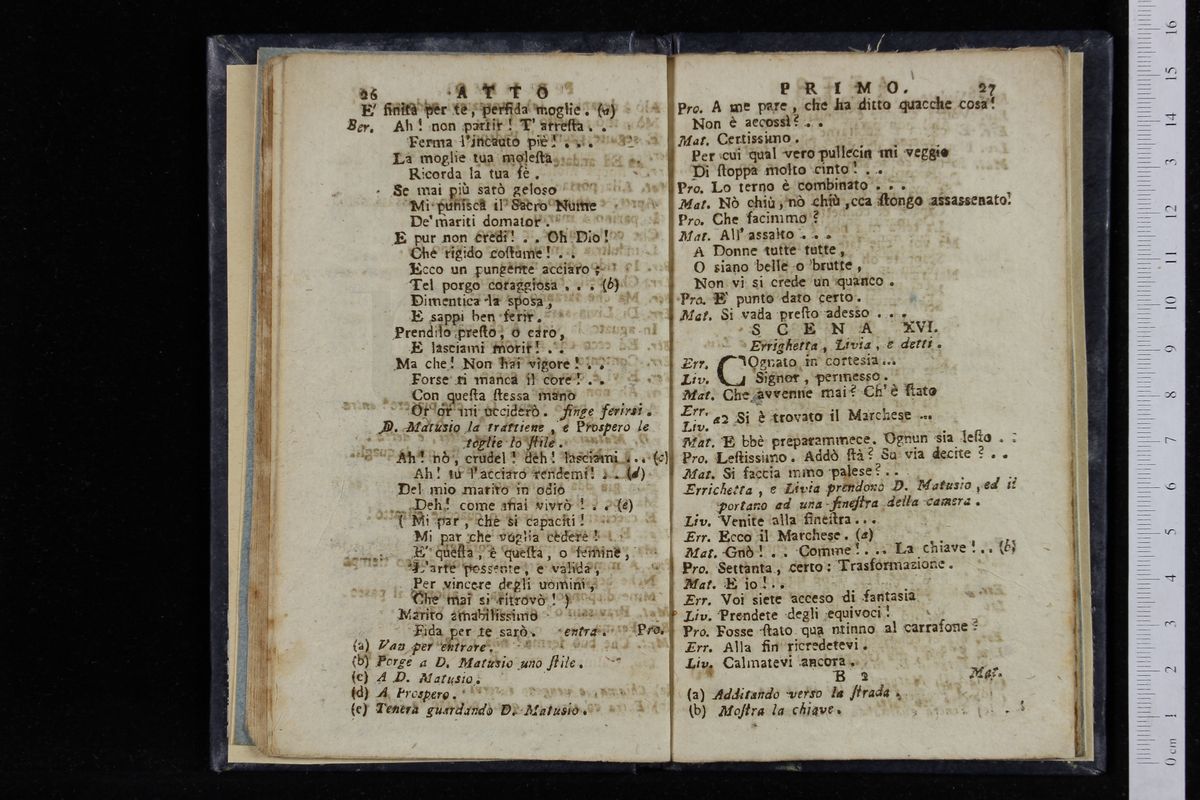 26 A T T O
E' finita per te, perfida moglie. (a)
Ber. Ah! non partir! T' arreſta . .
Ferma l'incauto piè! . . .
La moglie tua moleſta
Ricorda la tua fè .
Se mai più sarò geloso
Mi puniſca il Sacro Nume
De' mariti domator .
E pur non credi! . . Oh Dio!
Che rigido coſtume! . .
Ecco un pungente acciaro ;
Tel porgo coraggiosa . . . (b)
Dimentica la sposa,
E sappi ben ferir .
Prendilo preſto, o caro,
E lasciami morir! . .
Ma che! Non hai vigore! . .
Forse ti manca il core! . .
Con queſta ſtessa mano
Or or mi ucciderò . finge ferirsi .
D. Matusio la trattiene , e Prospero le
toglie lo ſtile .
Ah! nò, crudel! deh! lasciami ... (c)
Ah! tu l'acciaro rendemi! . . (d)
Del mio marito in odio
Deh! come mai vivrò ! . . (e)
( Mi par, che si capaciti!
Mi par che voglia cedere!
E' queſta, è queſta, o femine,
L'arte possente, e valida,
Per vincere degli uomini,
Che mai si ritrovò! )
Marito amabilissimo
Fida per te sarò. entra. Pro.
(a) Van per entrare .
(b) Porge a D. Matusio uno ſtile .
(c) A D. Matusio .
(d) A Prospero .
(e) Tenera guardando D. Matusio .
P R I M O . 27
Pro. A me pare , che ha ditto quacche cosa!
Non è accossì? . .
Mat. Certissimo .
Per cui qual vero pullecin mi veggio
Di ſtoppa molto cinto! . .
Pro. Lo terno è combinato . . .
Mat. Nò chiù, nò chiù ,cca ſtongo assassenato!
Pro. Che facimmo ?
Mat. All' assalto . . .
A Donne tutte tutte ,
O siano belle o brutte ,
Non vi si crede un quanco .
Pro. E' punto dato certo .
Mat. Si vada preſto adesso . . .
S C E N A XVI.
Errighetta , Livia , e detti .
Err. COgnato in cortesia ...
Liv. Signor , permesso .
Mat. Che avvenne mai? Ch' è ſtato
Err.
Liv. a2 Si è trovato il Marchese ...
Mat. E bbè preparammece. Ognun sia leſto . :
Pro. Leſtissimo . Addò ſtà? Su via decite ? . .
Mat. Si faccia mmo palese? . .
Errichetta , e Livia prendono D. Matusio , ed il
portano ad una fineſtra della camera .
Liv. Venite alla fineſtra...
Err. Ecco il Marchese. (a)
Mat. Gnò! . . Comme! ... La chiave! .. (b)
Pro. Settanta , certo: Trasformazione .
Mat. E io! . .
Err. Voi siete acceso di fantasia
Liv. Prendete degli equivoci!
Pro. Fosse ſtato qua ntinno al carrafone ?
Err. Alla fin ricredetevi .
Liv. Calmatevi ancora .
B 2 Mat.
(a) Additando verso la ſtrada .
(b) Moſtra la chiave .
0 cm 1 2 3 4 5 6 7 8 9 10 11 12 13 14 15 16